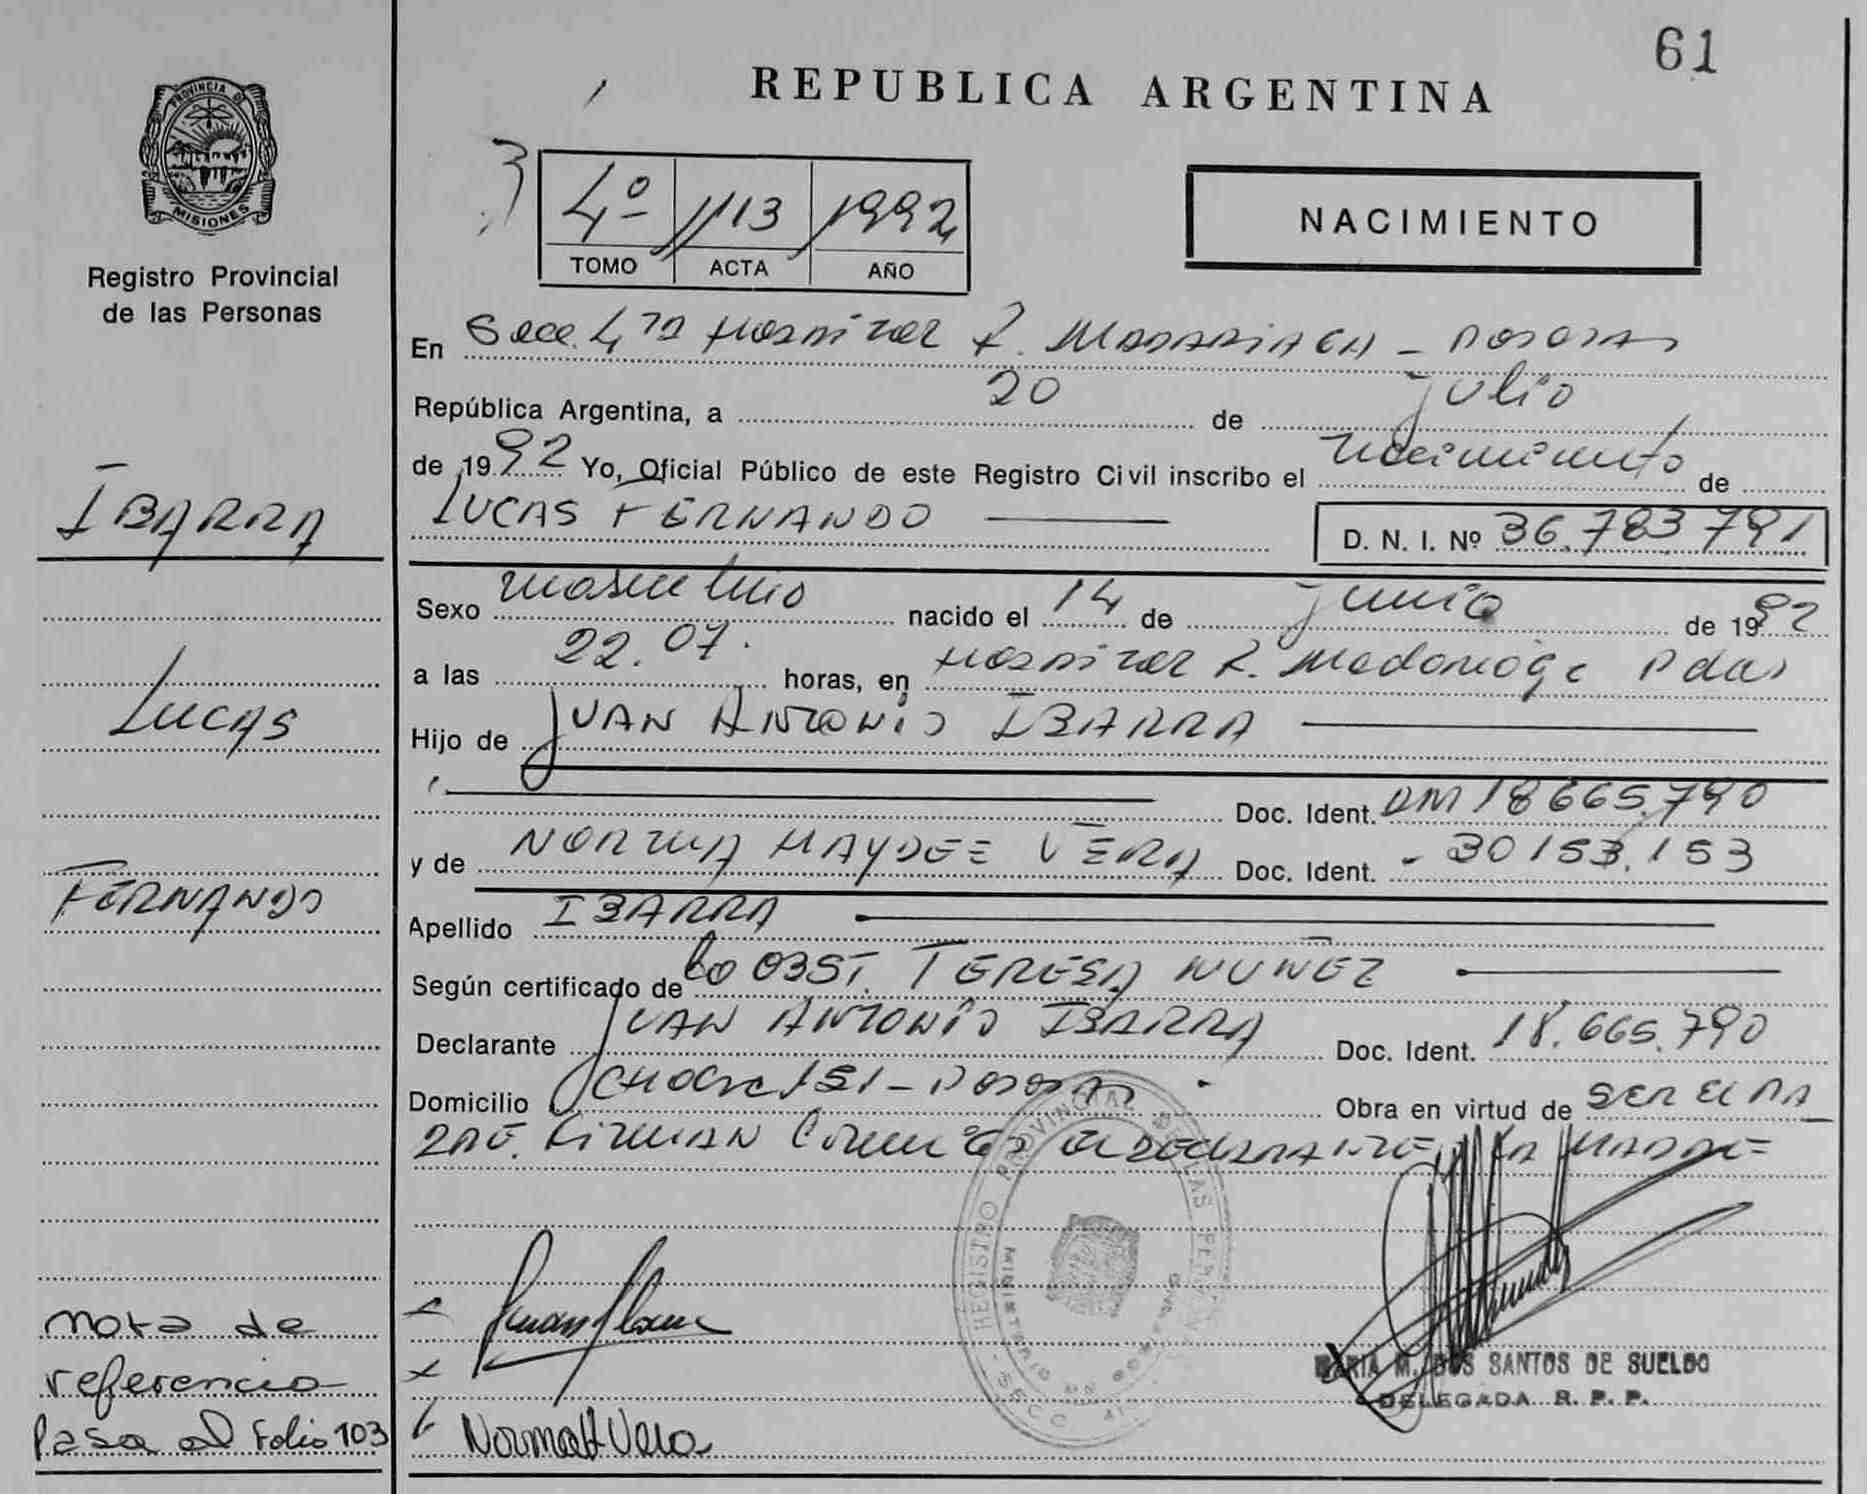 61
REPUBLICA ARGENTINA
PROVINCIA DE
MISIONES
Registro Provincial
de las Personas
4º 1113 1992
TOMO ACTA AÑO
NACIMIENTO
En Secc. 4ta Hospital R. Madariaga - Posadas
República Argentina, a 20 de julio
de 1992 Yo, Oficial Público de este Registro Civil inscribo el nacimiento de
LUCAS FERNANDO
D. N. I. Nº 36.783791
Sexo masculino nacido el 14 de junio de 1992
a las 22.07. horas, en Hospital R. Madariaga Pdas
Hijo de JUAN ANTONIO IBARRA
Doc. Ident. DM 18665.790
y de NORMA HAYDEE VERA Doc. Ident. - 30153.153
Apellido IBARRA
Según certificado de la OBST. TERESA NUÑEZ
Declarante JUAN ANTONIO IBARRA Doc. Ident. 18.665.790
Domicilio 151 - Posadas Obra en virtud de SER EL PA
DRE. FIRMAN el DECLARANTE LA MADRE
IBARRA
LUCAS
FERNANDO
nota de
referencia
Pasa al Folio 103
REGISTRO PROVINCIAL DE LAS PERSONAS
MINISTERIO DE GOBIERNO
Norma H Vera
MARIA M. DOS SANTOS DE SUELDO
DELEGADA R. P. P.